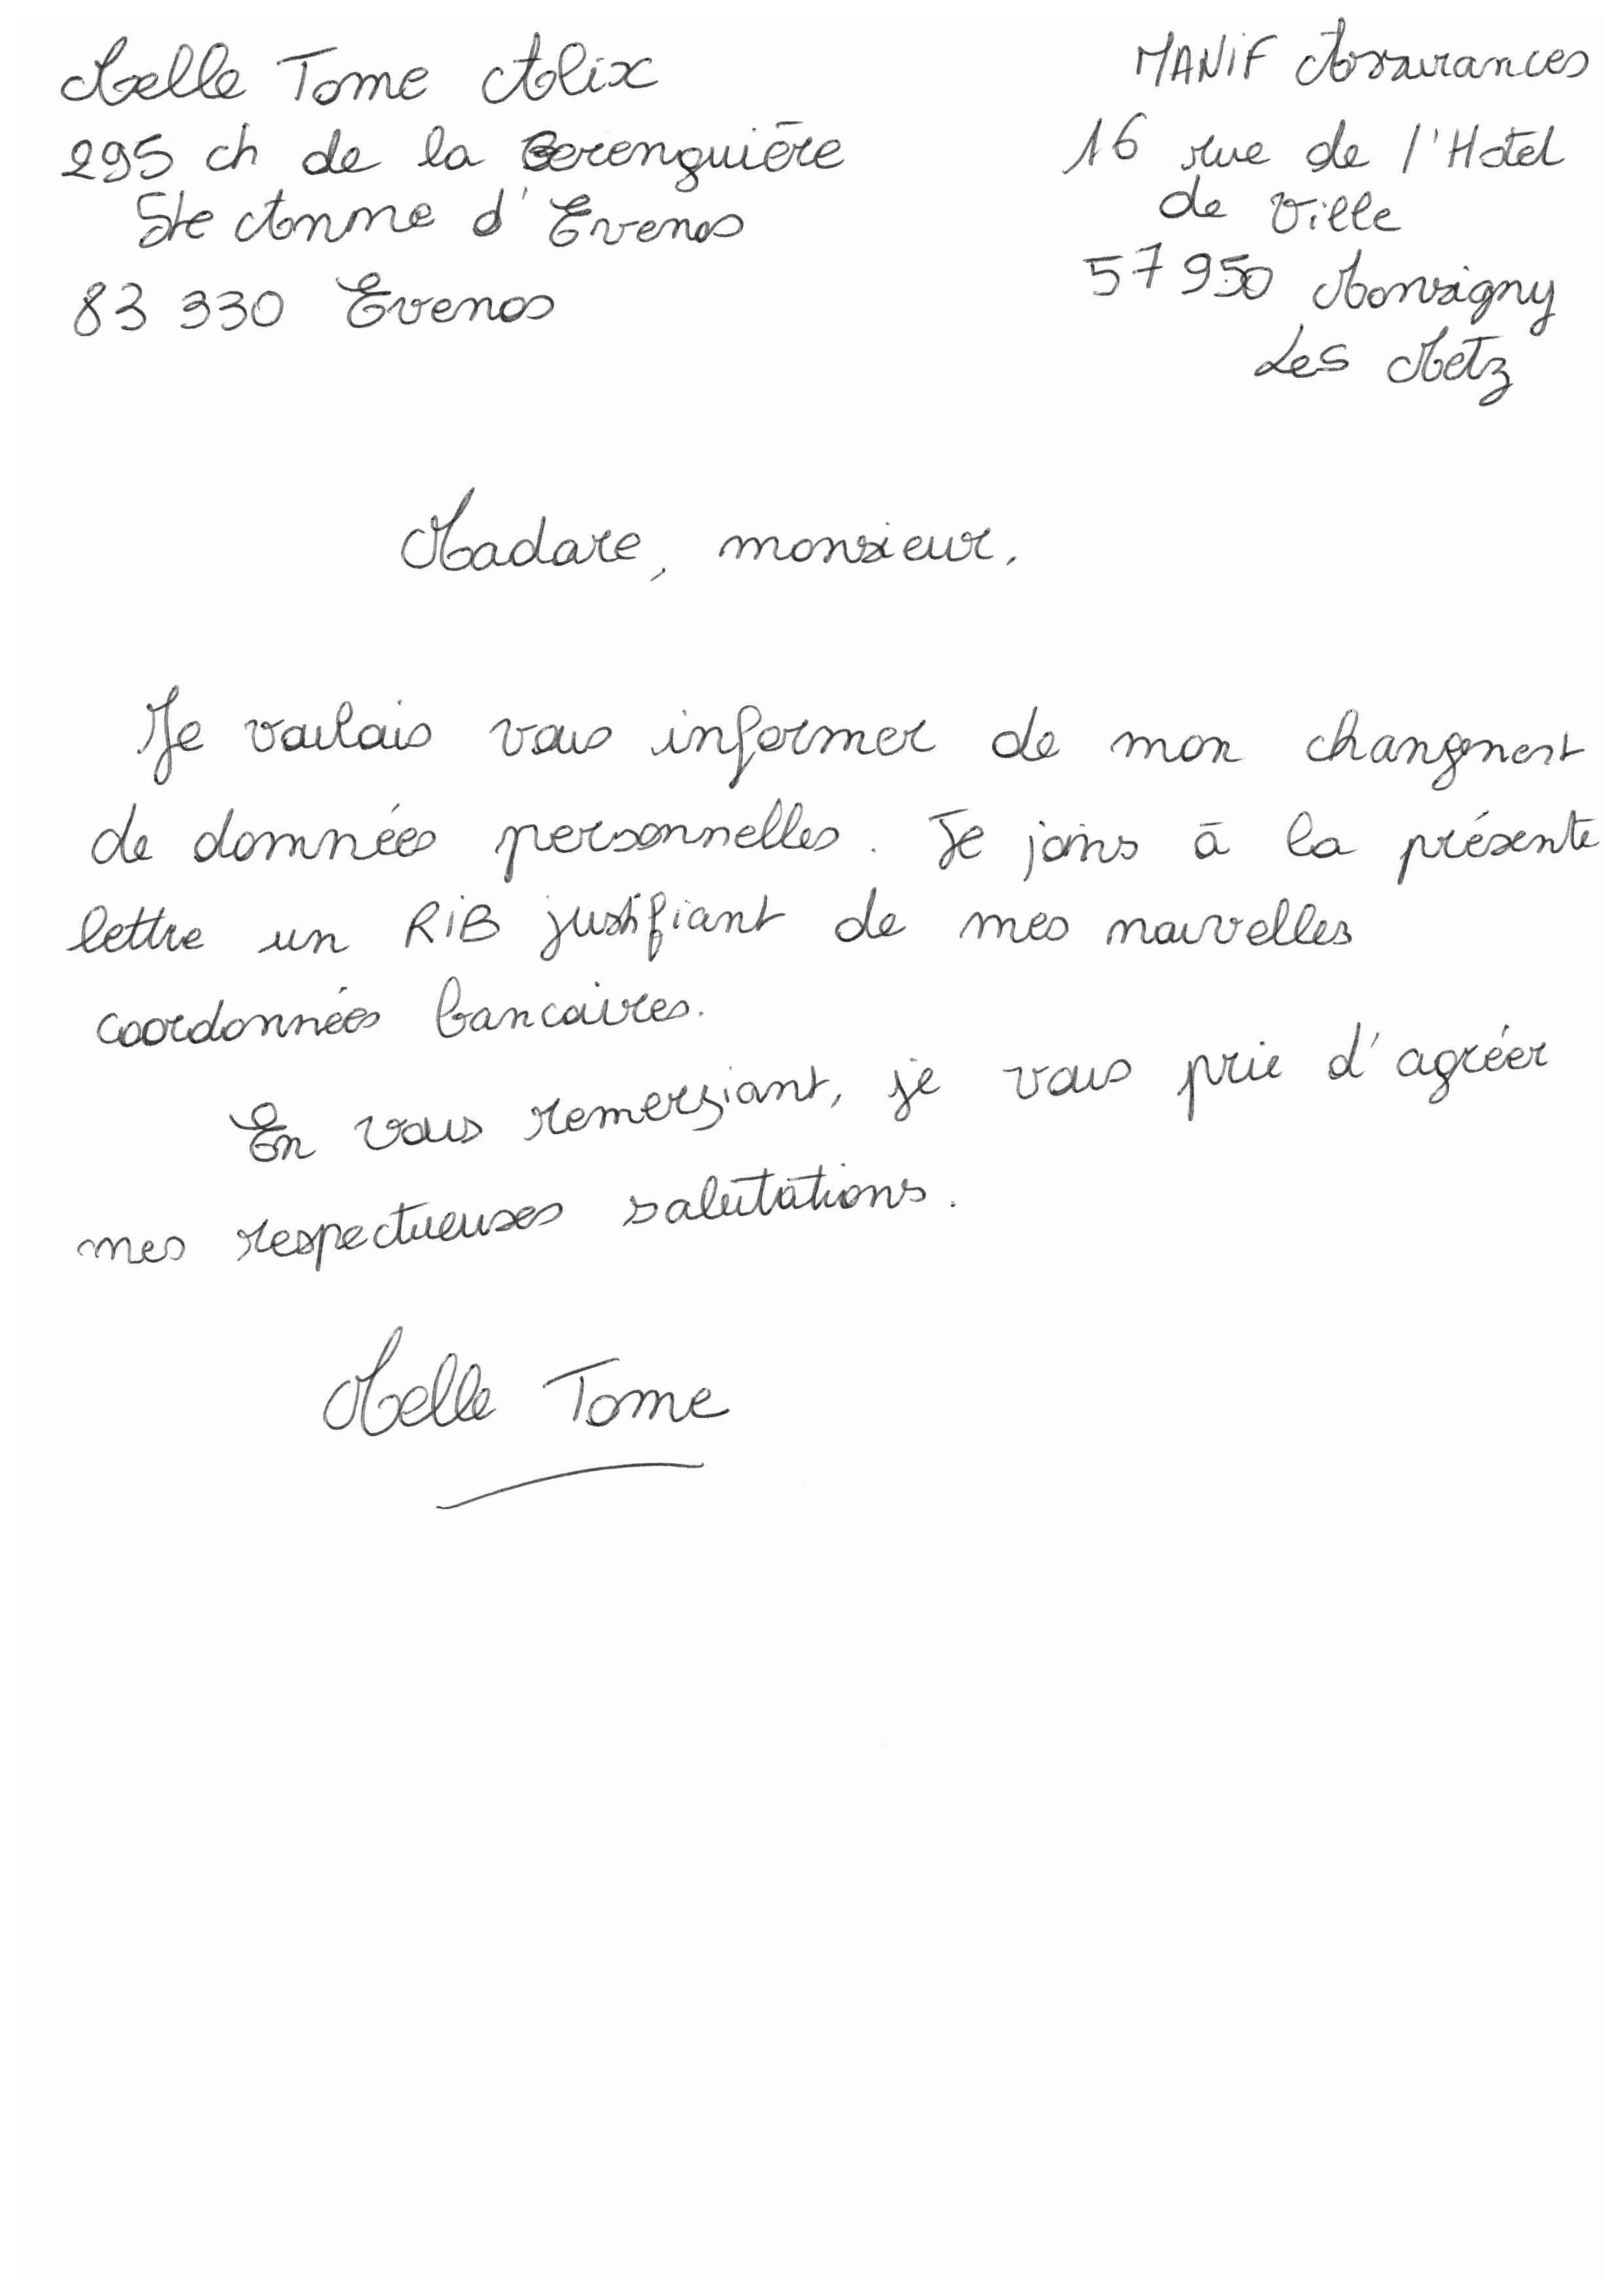 Melle Tome Alix
295 ch de la Berenguière
Ste Anne d'Evenos
83 330 Evenos
MANiF Assurances
16 rue de l'Hotel
de Ville
57 950 Monsigny
Les Metz
Madame, monsieur,
Je voulais vous informer de mon changement
de données personnelles. Je joins à la présente
lettre un RiB justifiant de mes nouvelles
coordonnées bancaires.
En vous remerçiant, je vous prie d'agréer
mes respectueuses salutations.
Melle Tome